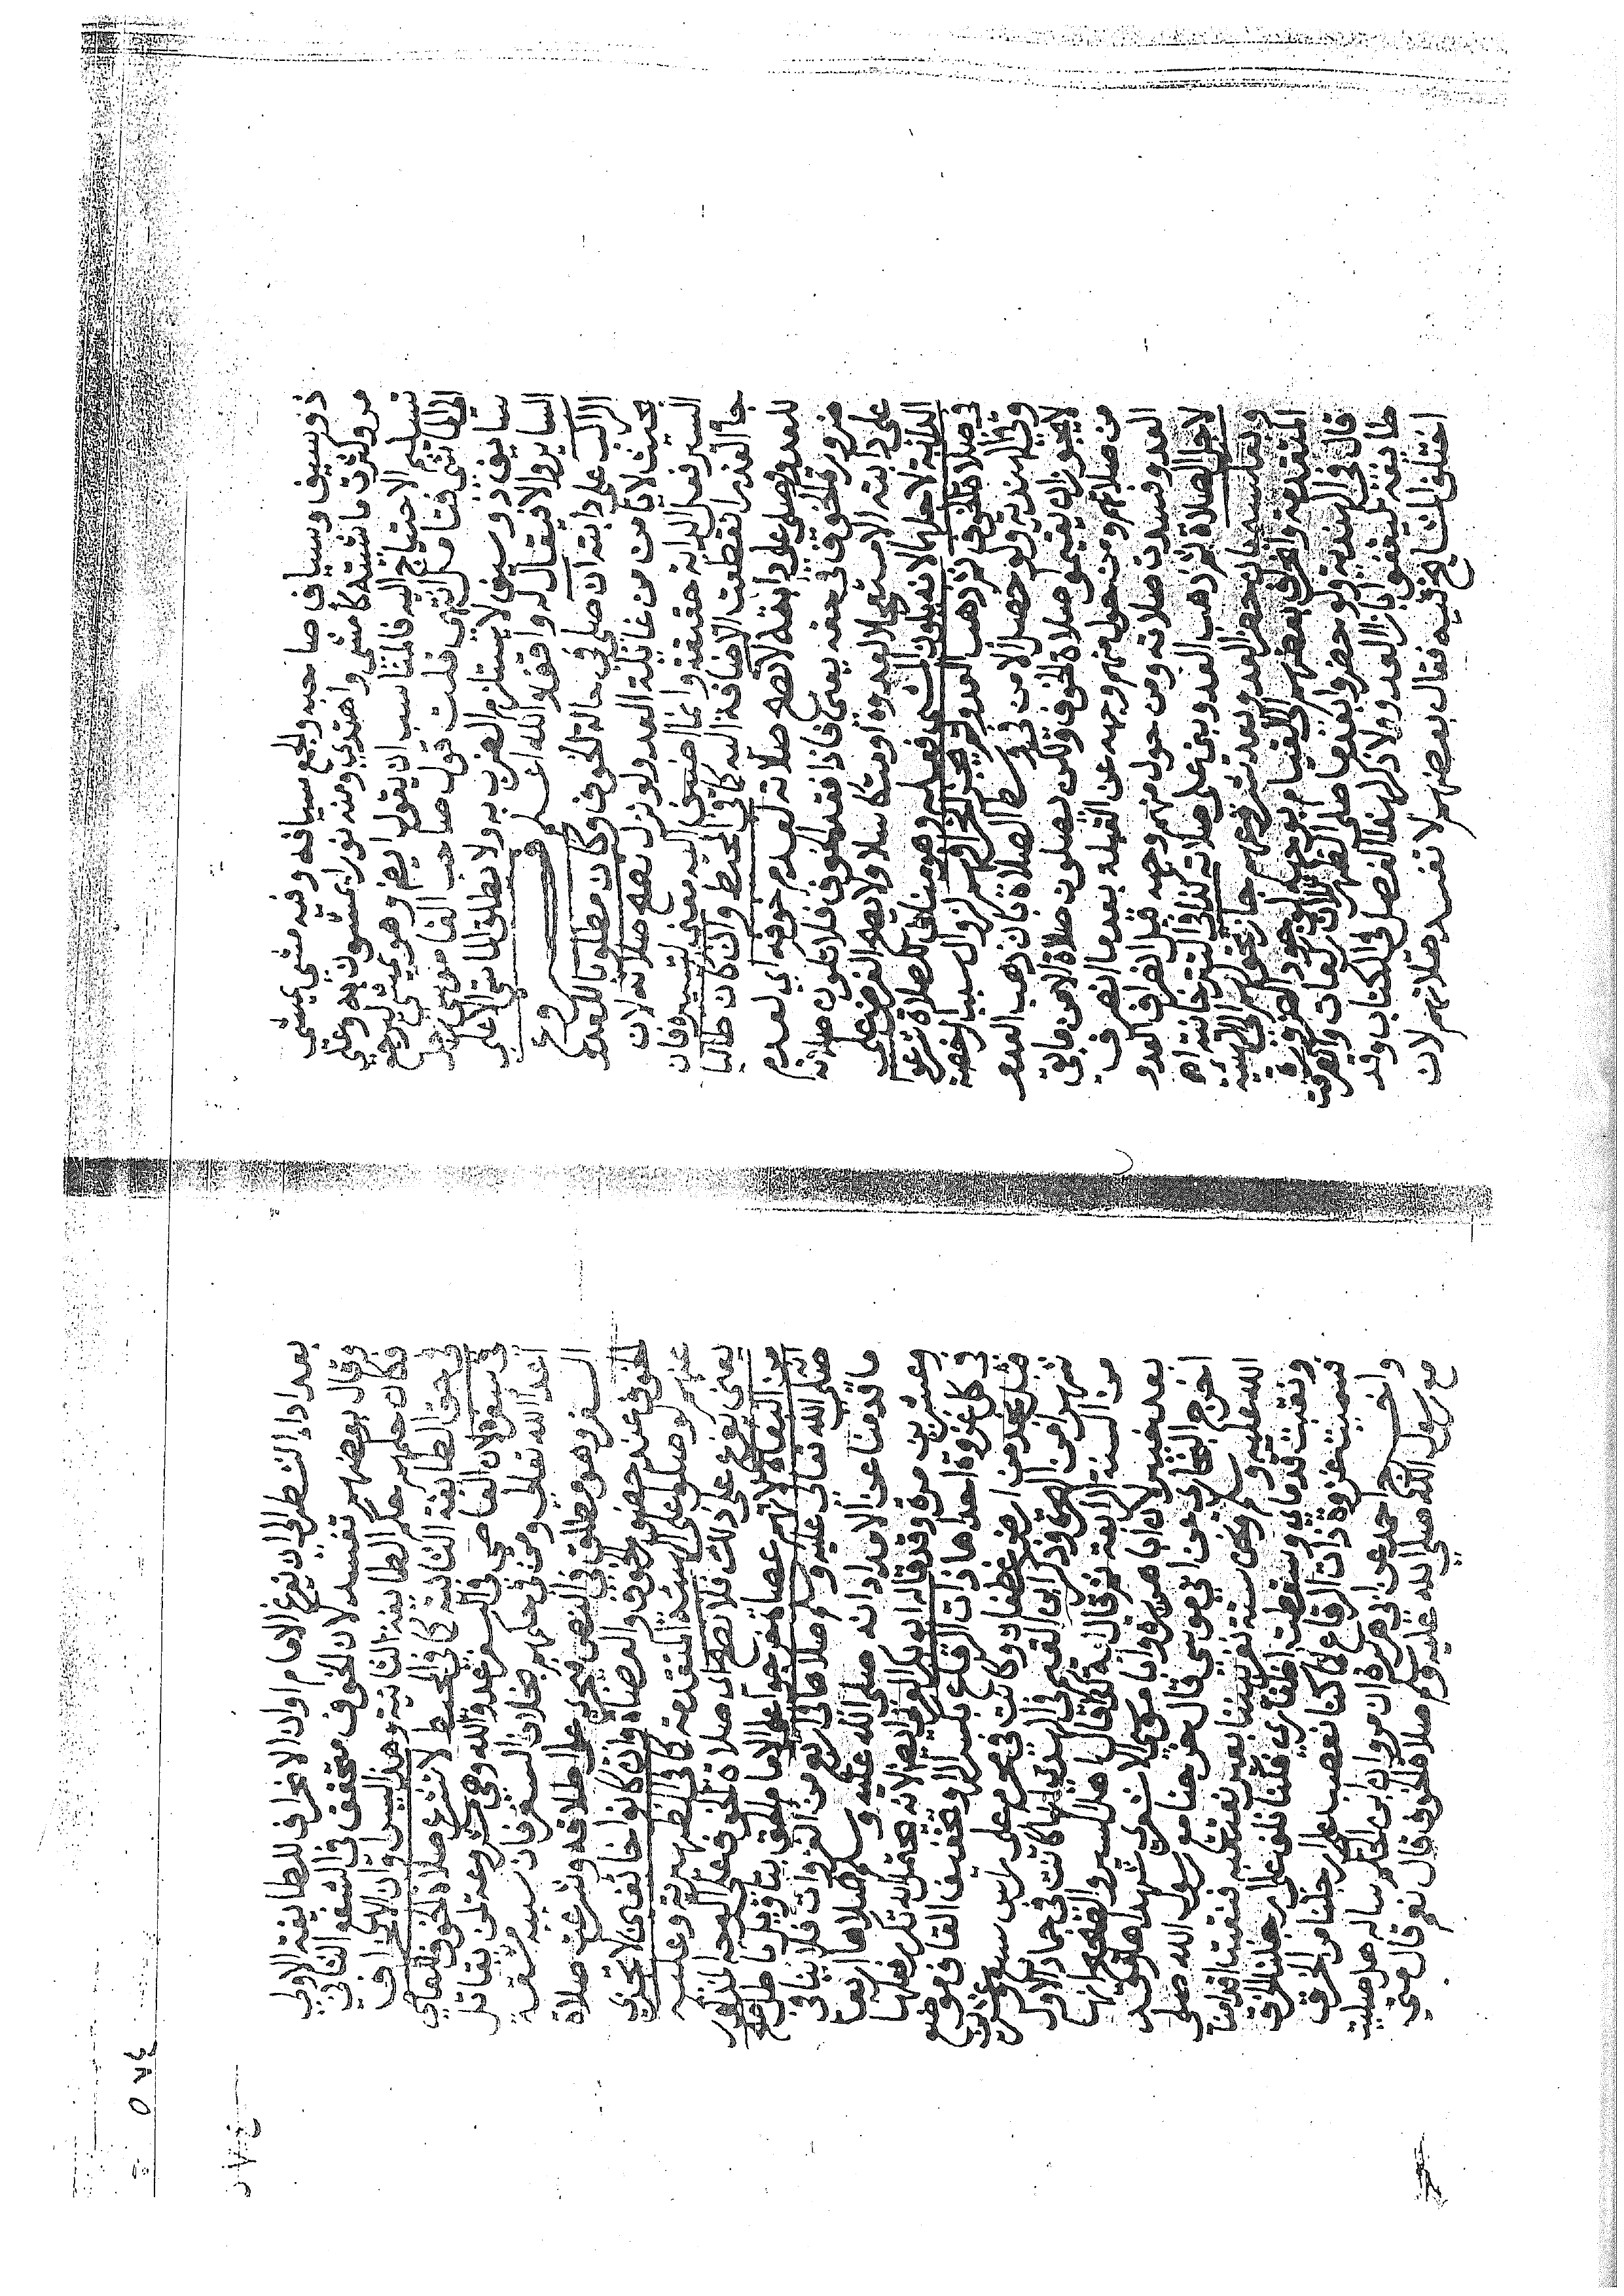 ذو سيف وسياف صاحبه والجمع سيافة وفيه مشي يمشي
مر وكثرت ماشيته كأمشى واهتدى ومنه نورا يمشون به وعلى
تسليم الاحتياج اليه فالمناسب ان يقول ايضر وهو يمشي ليرجع
الى الماشي فتأمل انتهى قلت قول صاحب القاموس رجل
سايف ذو سيف لا يستلزم الضرب به ولا يطلق الماشي الا على
الساير والا فيقال له واقف والله اعلم فروع
الراكب على دابته ان صلى في حالة الخوف وكان مطلوبا للعدو
بحيث لا يأمن من غايلة العدو لو نزل تصح صلاته لان
السير فعل الدابة حقيقة وانما اضيف اليه معنى بتسييره فان
جاء العذر انقطعت الاضافة اليه كما في المحيط وان كان طالبا
للعدو وصلى على دابته لا تصح صلاته لعدم خوفه اي لعدم
ضرورة الخوف في حقه يعني فاذا فقد الخوف فلا تكون صلاته
على دابته الا مستعجلا لعدوه او متكاسلا ولا يصح الفرض على
الدابة لاجلها لانه يكون المشي فعله وهو مناف للصلاة شرعوا
في صلاة الخوف ثم ذهب العدو لم يجز انحرافهم لزوال سبب الرخصة
وفي الهندية ولو حصل الامن في وسط الصلاة بان ذهب العدو
لا يجوز ان يتموا صلاة الخوف ولكن يصلون صلاة الامن ما بقي
من صلاتهم ومن حول منهم وجهه عن القبلة بعد ما انصرف
العدو فسدت صلاته ومن حول منهم وجهه قبل انصراف العدو
لاجل الصلاة ثم ذهب العدو بنى على صلاته كذا في التترخانية اه
وبعكسه بان حضر العدو بعد شروعهم جاز نحو الهيئة
المتقدمة وانحرف بعضهم الى القيام بوجهه لوجود الضرورة
قال في الهندية ولو حضروا بعدما صلى الظهر ثلاث ركعات وانحرفت
طائفة ليقفوا بازاء العدو ولا ذكر لهذا الفصل في الكتاب وقد
اختلف المشايخ فيه فقال بعضهم لا تفسد صلاتهم لان
بعد اداء الشطر الى ان يفرغ الامام اوان الانحراف للطايفة الاولى
وقال بعضهم تفسد لان الخوف متحقق في الشفع الثاني
فكان حكمهم حكم الطايفة الثانية وهذا ليس اوان الانحراف
في حق الطايفة الثانية كما في المحيط لا تشرع صلاة الخوف للعاصي
في سفره لان العاصي في السفر عدو الله وهي مشروعة لمن يقاتل
اعداء الله تعالى ومن في حكمهم بخلاف السفر فان سببه مشقة
السفر وهو مطلق في النص فيجري على اطلاقه وشرعت صلاة
الخوف عند حضور الخوف والعصاة وان كانوا خائفين لا تجزي
عنهم لو صلوا على الهيئة المتقدمة كما في الظهيرية وعليه
يعني يفرع على ذلك فلا تصح صلاة الخوف على الوجه المذكور
من البغاة لانهم عصاة خرجوا على الامام الحق بتاويل ما صح انه
صلى الله تعالى عليه وسلم صلاها في اربع من الغزوات فلا ينافي
ما قدمنا عن الامداد انه صلى الله عليه وسلم صلاها اربعا
وعشرين مرة وقد قاله ابو بكر العربي ايضا لانه يحتمل انه تكرر فعلها
في كل غزوة احداها ذات الرقاع بكسر الراء وتخفيف القاف موضع
قبل نجد من ارض غطفان وكانت في محرم على راس سبعة وعشرين
شهرا من الهجرة وذكر ابن القيم في الهدي انها كانت في جمادى الاول
من السنة الرابعة ثم قال هكذا قال اهل السير والصحيح انها
بعد خيبر لان ابا هريرة وابا موسى الاشعري شهداها وقد
اخرج البخاري عن ابي موسى قال خرجنا مع رسول الله صلى
الله عليه وسلم ونحن ستة نفر بيننا بعير نعتقبه فنقبت اقدامنا
ونقبت قدماي وسقطت اظفاري فكنا نلف على ارجلنا الخرق
فسميت غزوة ذات الرقاع لما كنا نعصب على ارجلنا من الخرق
واخرج احمد عن ابي هريرة ان مروان ابن الحكم ساله هل صليت
مع رسول الله صلى الله عليه وسلم صلاة الخوف قال نعم قال متى